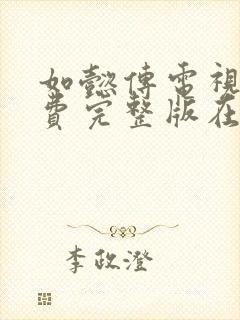 如懿傅電視
費完整版在
李政澄